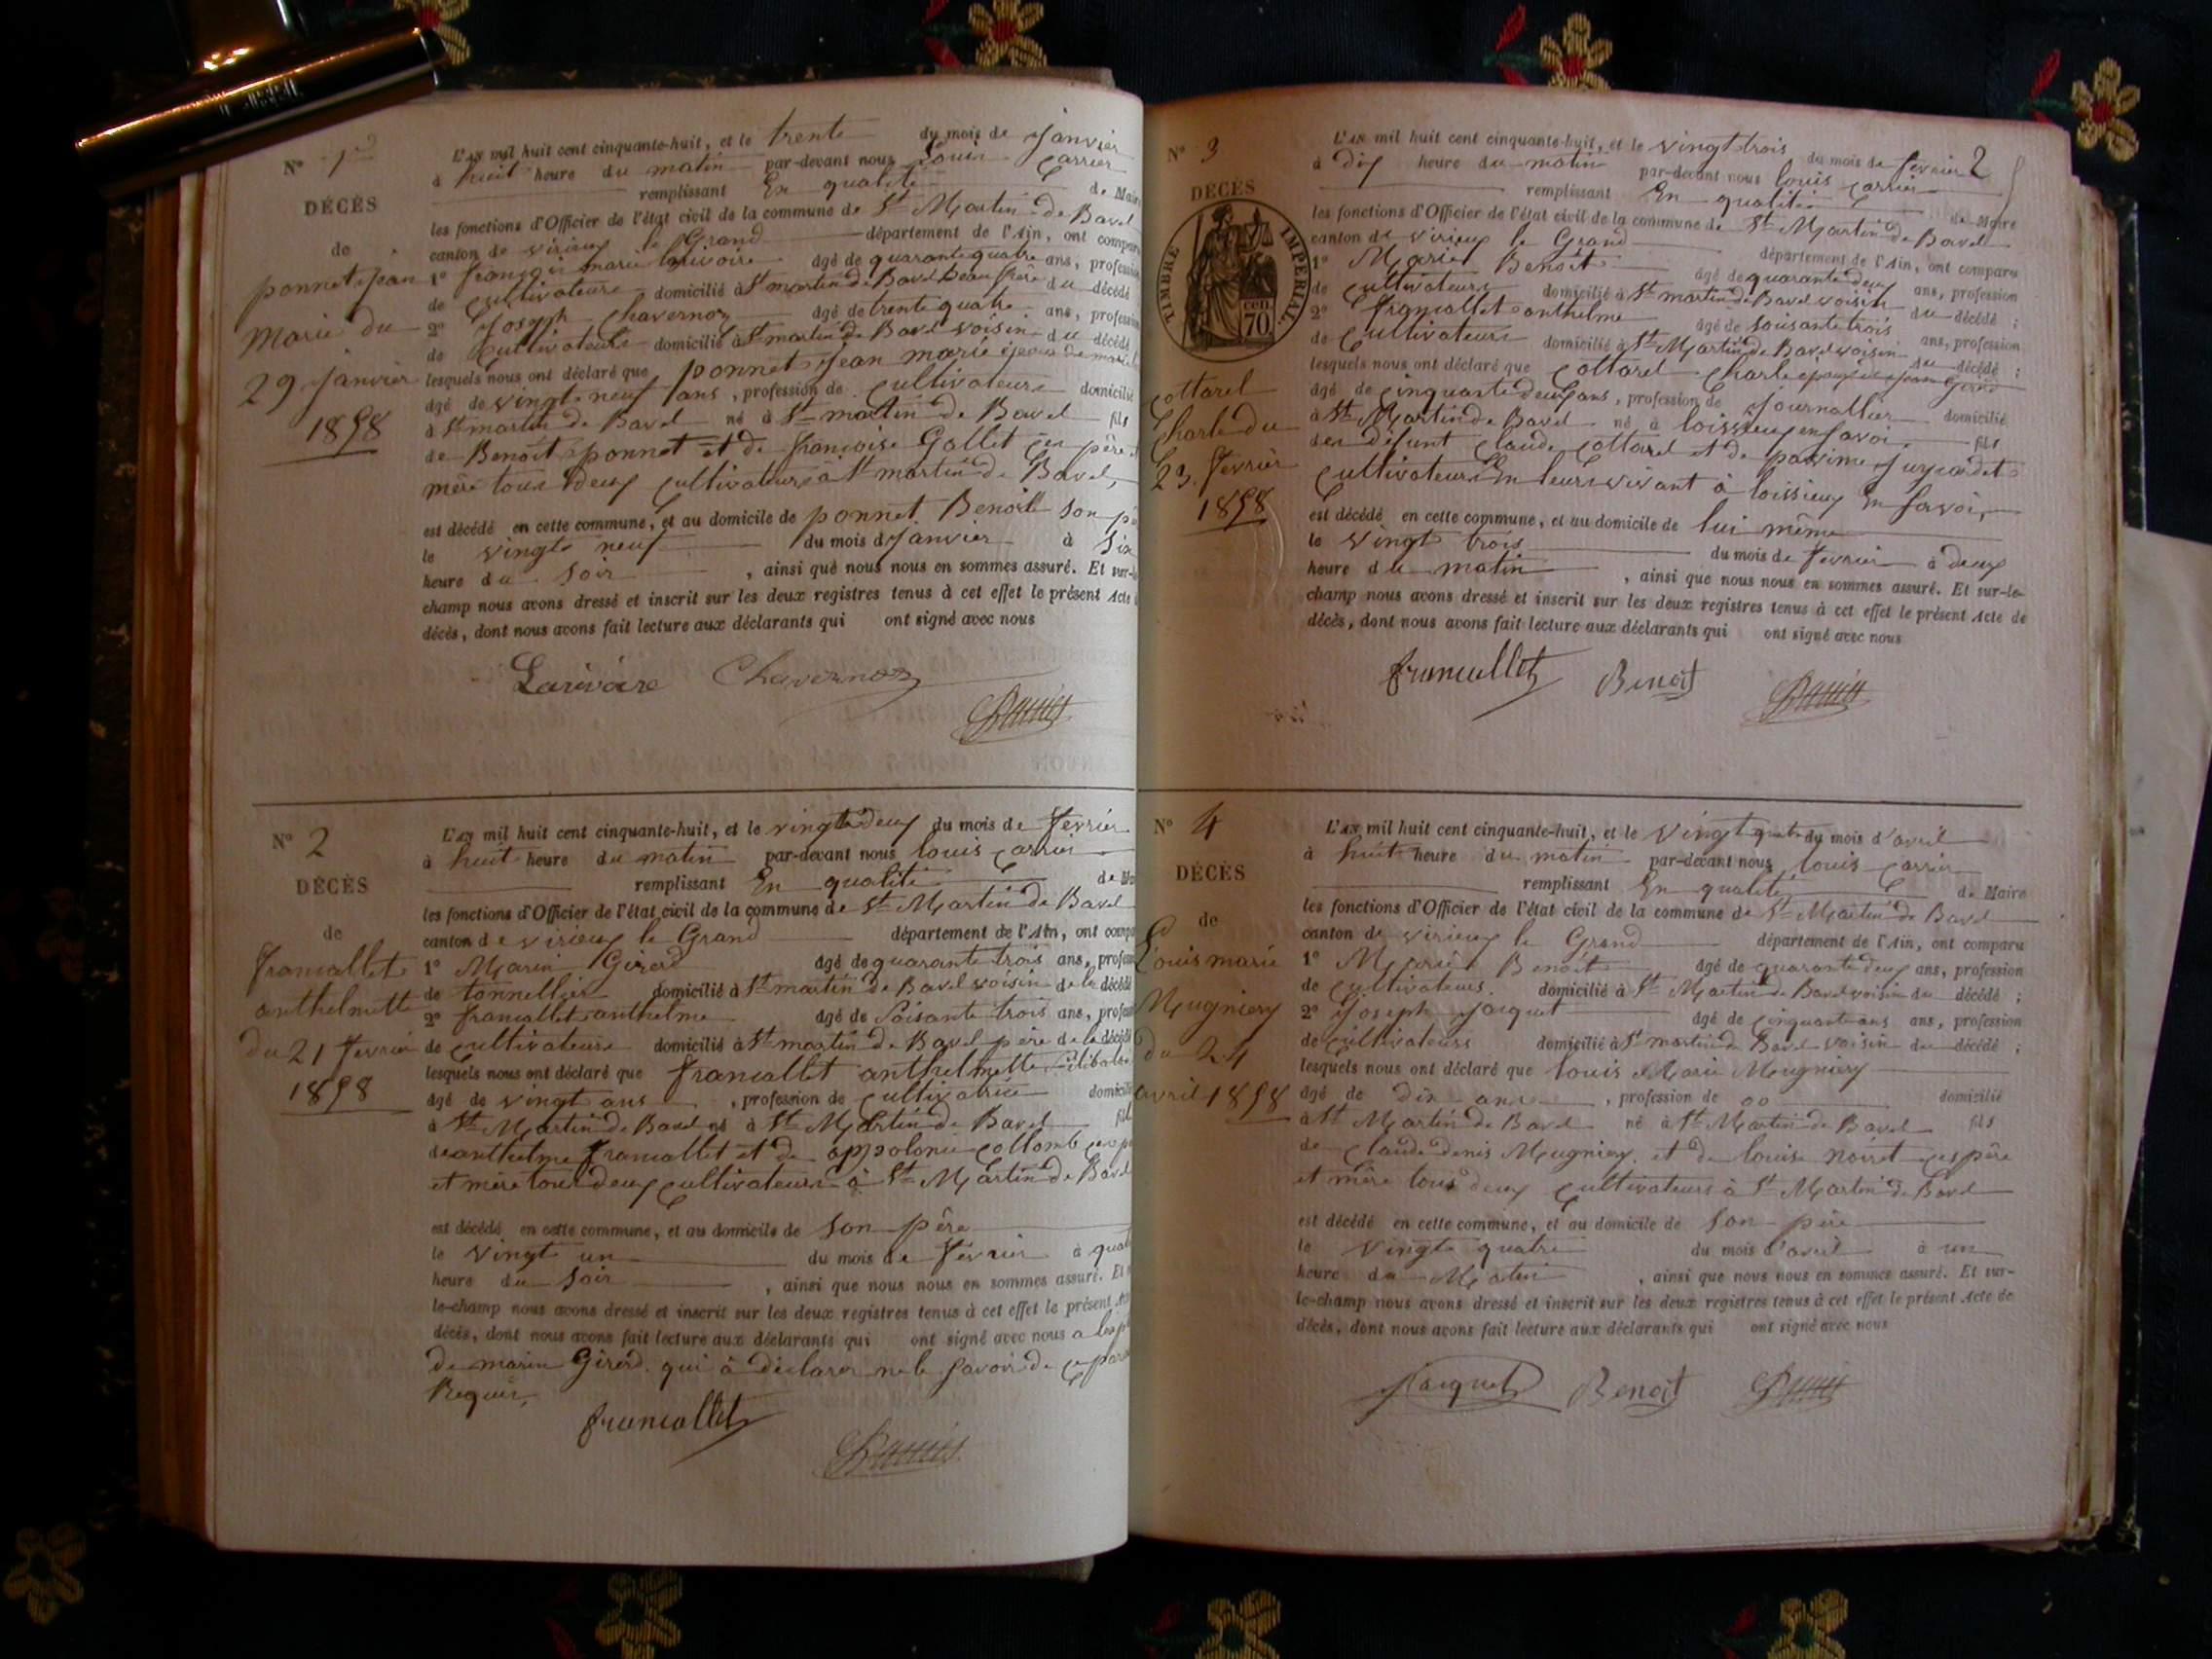 N° 1er
DÉCÈS
de
ponnet Jean
Marie du
29 Janvier
1858
L'AN mil huit cent cinquante-huit, et le trente du mois de Janvier
à huit heure du matin par-devant nous Louis Carrier
remplissant En qualité de Maire
les fonctions d'Officier de l'état civil de la commune de St Martin de Bavel
canton de virieux le Grand département de l'Ain, ont comparu
1° françois marie larivoire âgé de quarante quatre ans, profession
de Cultivateurs domicilié à St martin de Bavel Beau frère du décédé
2° Joseph Chavernoz âgé de trente quatre ans, profession
de Cultivateurs domicilié à St martin de Bavel voisin du décédé
lesquels nous ont déclaré que ponnet Jean marie
âgé de vingt neuf ans, profession de Cultivateurs domicilié
à St martin de Bavel né à St martin de Bavel fils
de Benoit ponnet et de françoise Gallet ces père et
mère tous deux Cultivateurs à St martin de Bavel,
est décédé en cette commune, et au domicile de ponnet Benoit son
le vingt neuf du mois d Janvier à Six
heure du Soir, ainsi que nous nous en sommes assuré. Et sur-le-
champ nous avons dressé et inscrit sur les deux registres tenus à cet effet le présent Acte
décès, dont nous avons fait lecture aux déclarants qui ont signé avec nous
Larivoire Chavernoz
N° 2
DÉCÈS
de
francallet
anthelmette
du 21 fevrier
1858
L'AN mil huit cent cinquante-huit, et le vingt deux du mois de fevrier
à huit heure du matin par-devant nous louis Carrier
remplissant En qualité de
les fonctions d'Officier de l'état civil de la commune de St Martin de Bavel
canton de virieux le Grand département de l'Ain, ont
1° Marin Girerd âgé de quarante trois ans,
de tonnellier domicilié à St martin de Bavel voisin de la décédé
2° francallet anthelme âgé de Soisante trois ans,
de Cultivateurs domicilié à St martin de Bavel père de la décédé
lesquels nous ont déclaré que francallet anthelmette
âgé de vingt ans, profession de Cultivatrice
à St Martin de Bavel né à St Martin de Bavel
de anthelme francallet et de appolonie Collomb
et mère tous deux Cultivateurs à St Martin de Bavel
est décédé en cette commune, et au domicile de Son père
le vingt un du mois de février à
heure du Soir, ainsi que nous nous en sommes assuré. Et
le-champ nous avons dressé et inscrit sur les deux registres tenus à cet effet le présent
décès, dont nous avons fait lecture aux déclarants qui ont signé avec nous
de marin Girerd qui à déclarer ne le savoir de ce
Requis,
francallet
2
N° 3
DÉCÈS
TIMBRE IMPERIAL
70 cen
Cottarel
Charle du
23 fevrier
1858
L'AN mil huit cent cinquante-huit, et le vingt trois du mois de fevrier
à dix heure du matin par-devant nous louis Carrier
remplissant En qualité de Maire
les fonctions d'Officier de l'état civil de la commune de St Martin de Bavel
canton de virieux le Grand département de l'Ain, ont comparu
1° Marie Benoit âgé de quarante deux ans, profession
de Cultivateurs domicilié à St martin de Bavel voisin du décédé ;
2° francallet anthelme âgé de soisante trois ans, profession
de Cultivateurs domicilié à St Martin de Bavel voisin du décédé ;
lesquels nous ont déclaré que Cottarel Charle
âgé de Cinquante deux ans, profession de Journallier domicilié
à St Martin de Bavel né à loissieux en savoi fils
des défunt Claude Cottarel et de
Cultivateurs En leurs vivant à loissieux En savoi,
est décédé en cette commune, et au domicile de lui même
le vingt trois du mois de fevrier à deux
heure du matin, ainsi que nous nous en sommes assuré. Et sur-le-
champ nous avons dressé et inscrit sur les deux registres tenus à cet effet le présent Acte de
décès, dont nous avons fait lecture aux déclarants qui ont signé avec nous
francallet Benoit
N° 4
DÉCÈS
de
Louis marie
Mugniery
du 24
avril 1858
L'AN mil huit cent cinquante-huit, et le vingt quatre du mois d'avril
à huit heure du matin par-devant nous louis Carrier
remplissant En qualité de Maire
les fonctions d'Officier de l'état civil de la commune de St Martin de Bavel
canton de virieux le Grand département de l'Ain, ont comparu
1° Marie Benoit âgé de quarante deux ans, profession
de Cultivateurs domicilié à St Martin de Bavel voisin du décédé ;
2° Joseph Jacquet âgé de Cinquant ans ans, profession
de Cultivateurs domicilié à St martin de Bavel voisin du décédé ;
lesquels nous ont déclaré que louis Marie Mugniery
âgé de dix ans, profession de 00 domicilié
à St Martin de Bavel né à St Martin de Bavel fils
de Claude denis Mugniery et de louise noiret ces père
et mère tous deux Cultivateurs à St Martin de Bavel
est décédé en cette commune, et au domicile de Son père
le vingt quatre du mois d'avril à un
heure du Matin, ainsi que nous nous en sommes assuré. Et sur-
le-champ nous avons dressé et inscrit sur les deux registres tenus à cet effet le présent Acte de
décès, dont nous avons fait lecture aux déclarants qui ont signé avec nous
Jacquet Benoit